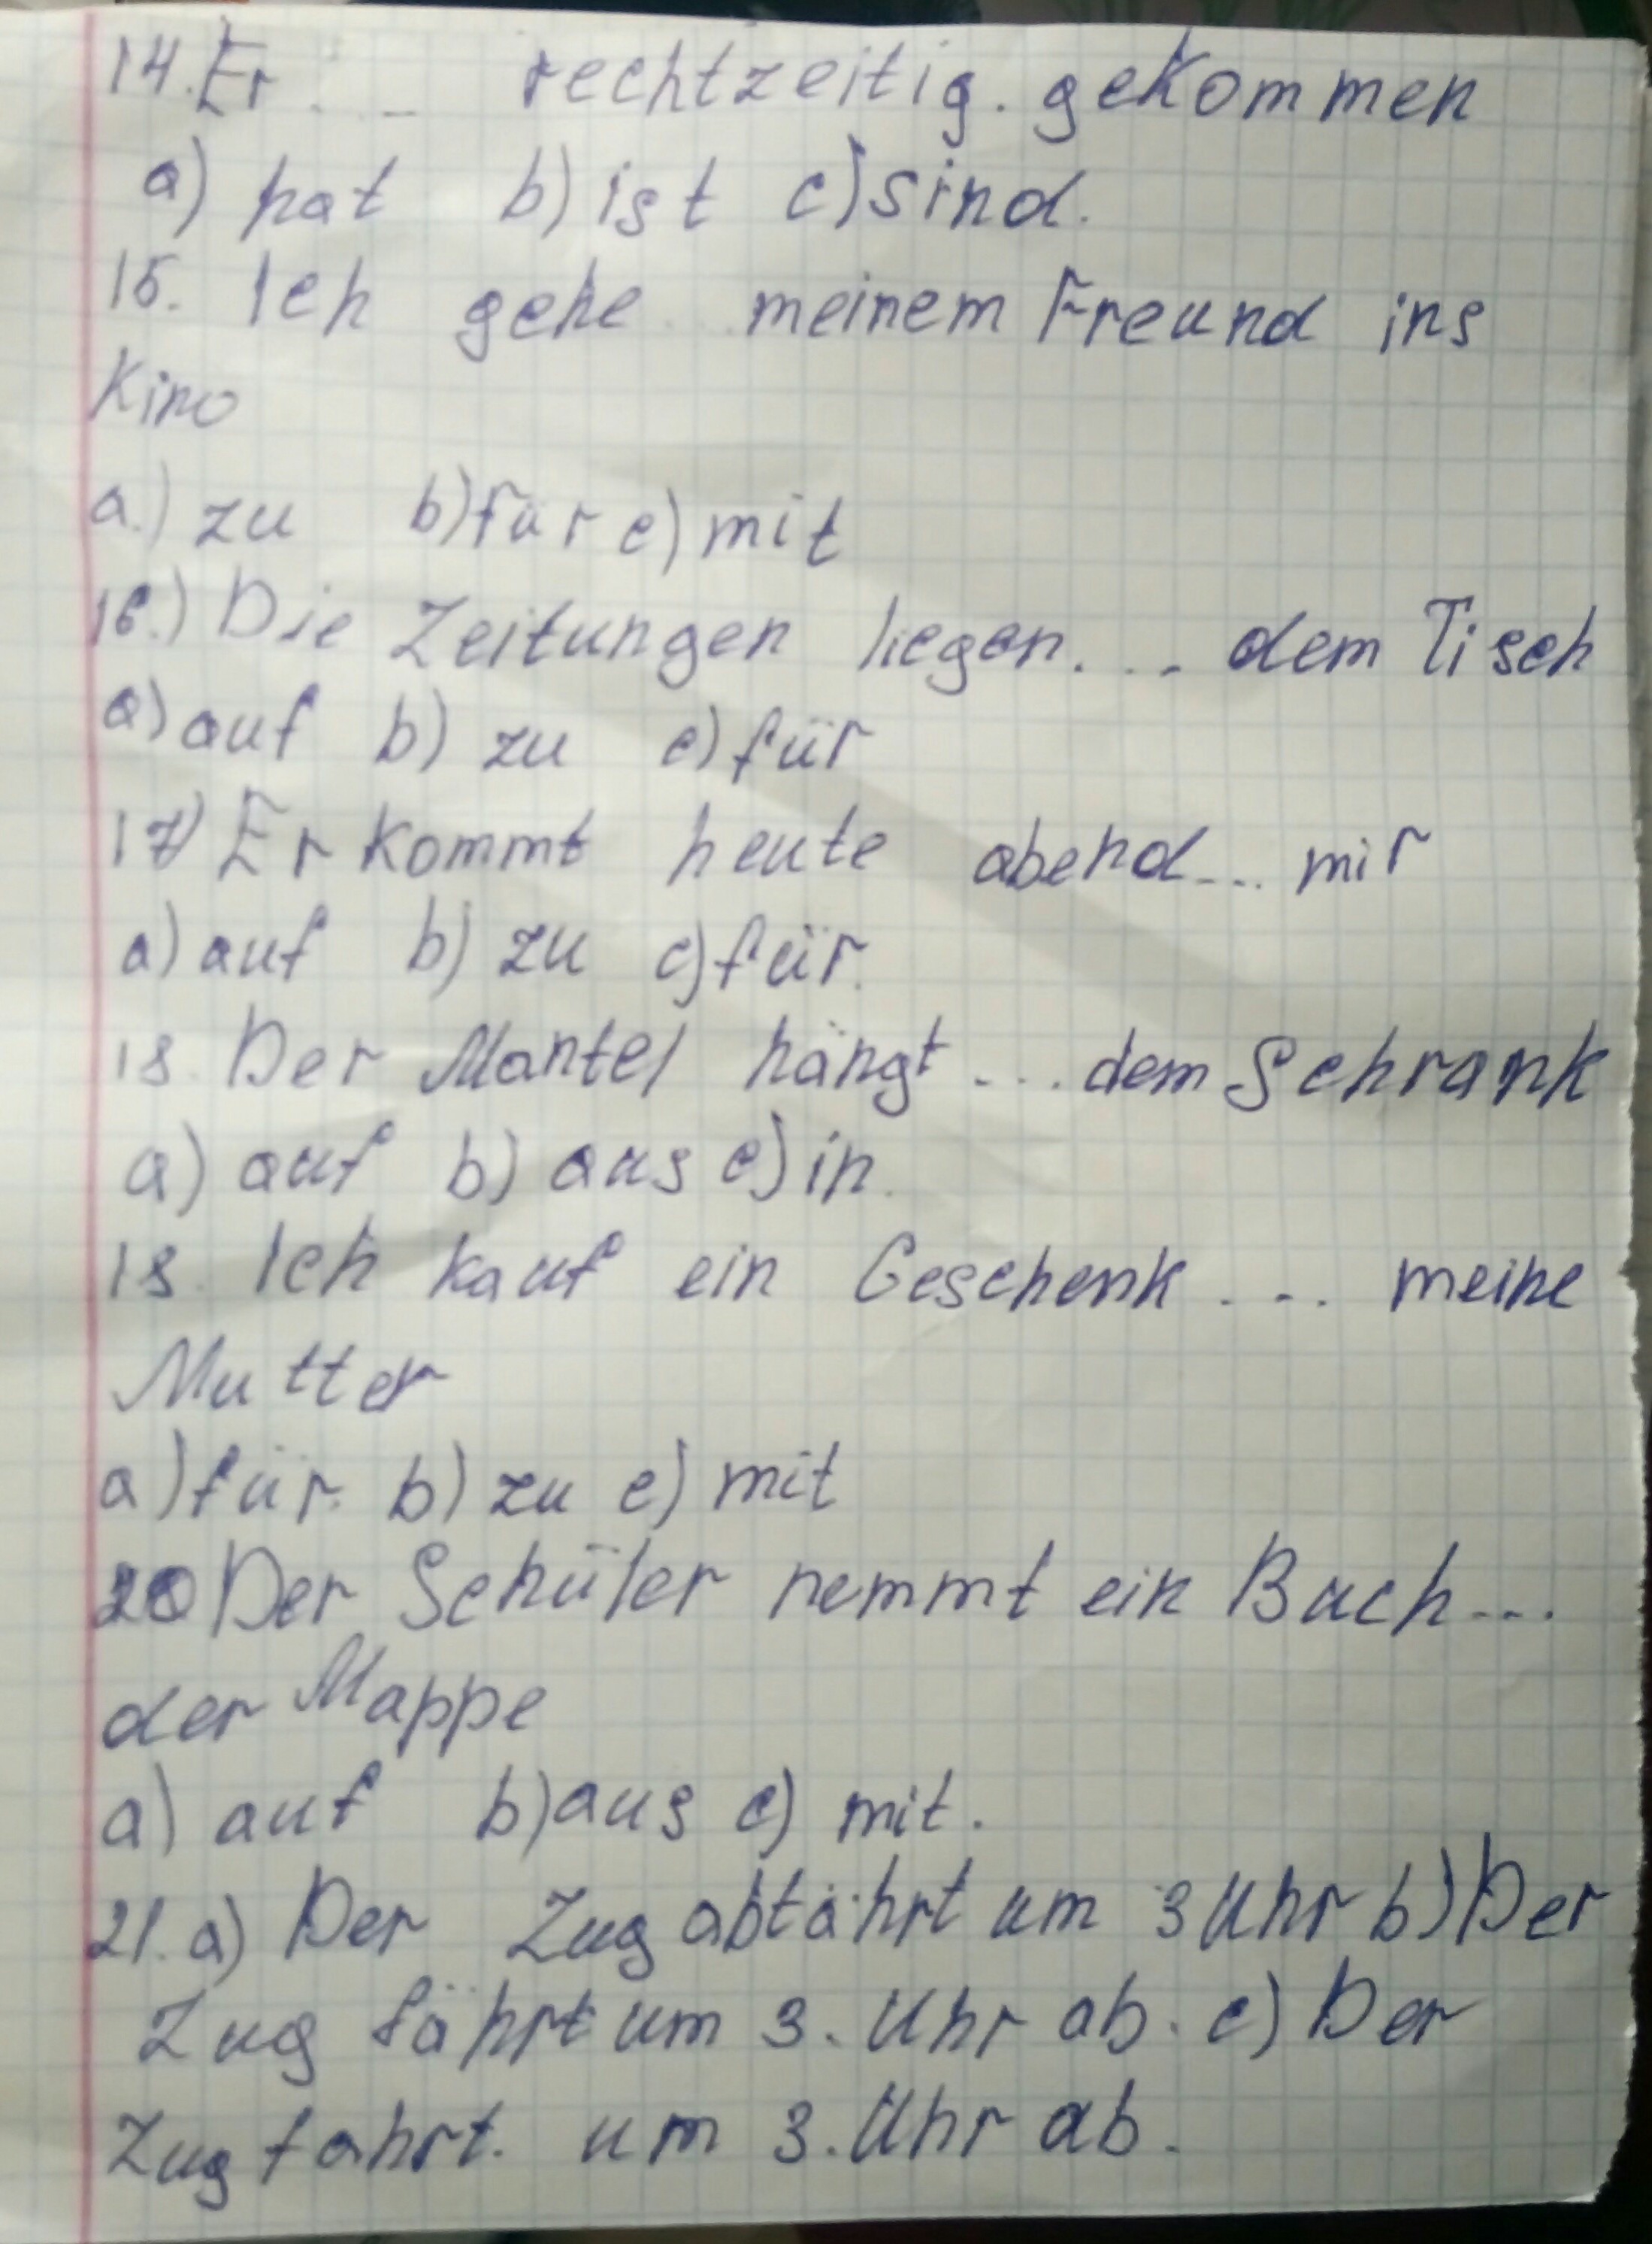 14. Er ... rechtzeitig. gekommen
a) hat b) ist c) sind.
15. Ich gehe ... meinem Freund ins
Kino
a.) zu b) für c) mit
16.) Die Zeitungen liegen. ... dem Tisch
a) auf b) zu c) für
17) Er kommt heute abend ... mir
a) auf b) zu c) für.
18. Der Mantel hängt ... dem Schrank
a) auf b) aus c) in.
18. Ich kauf ein Geschenk ... meine
Mutter
a) für. b) zu c) mit
20 Der Schüler nemmt ein Buch ...
der Mappe
a) auf b) aus c) mit.
21. a) Der Zug abfährt um 3 Uhr b) Der
Zug fährt um 3. Uhr ab. c) Der
Zug fahrt. um 3. Uhr ab.